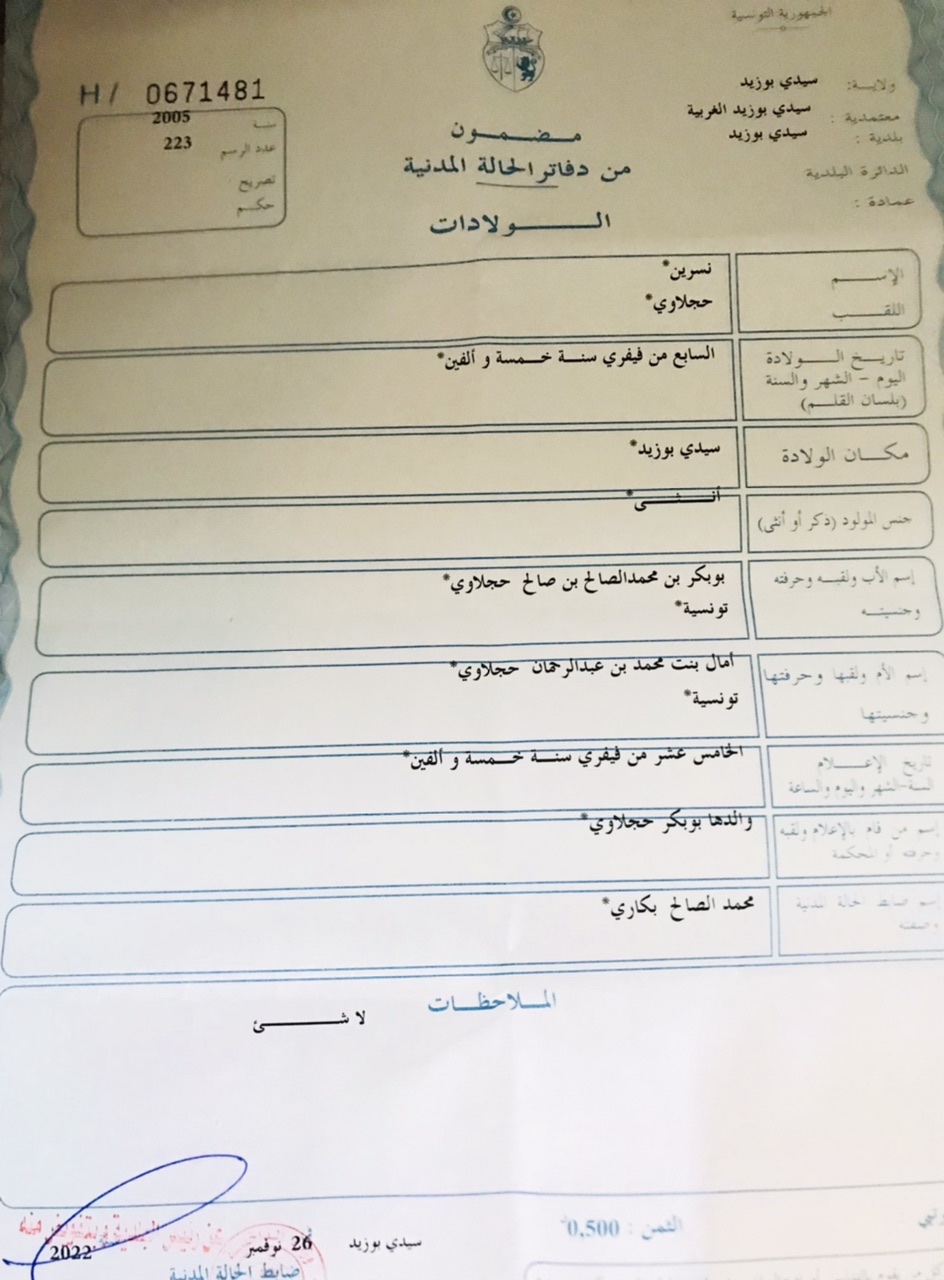 الجمهورية التونسية
ولاية: سيدي بوزيد
معتمدية : سيدي بوزيد الغربية
بلدية : سيدي بوزيد
الدائرة البلدية
عمادة :
H/ 0671481
سنة 2005
عدد الرسم 223
تصريح
حكم
مضمون
من دفاتر الحالة المدنية
الولادات
الإسم نسرين*
اللقب حجلاوي*
تاريخ الولادة السابع من فيفري سنة خمسة و ألفين*
اليوم - الشهر والسنة
(بلسان القلم)
مكان الولادة سيدي بوزيد*
جنس المولود (ذكر أو أنثى) أنثى*
إسم الأب ولقبه وحرفته بوبكر بن محمدالصالح بن صالح حجلاوي*
وجنسيته تونسية*
إسم الأم ولقبها وحرفتها أمال بنت محمد بن عبدالرحمان حجلاوي*
وجنسيتها تونسية*
تاريخ الإعلام الخامس عشر من فيفري سنة خمسة و ألفين*
السنة-الشهر واليوم والساعة
إسم من قام بالإعلام ولقبه والدها بوبكر حجلاوي*
وحرفته أو المحكمة
إسم ضابط الحالة المدنية محمد الصالح بكاري*
وصفته
الملاحظات
لا شئ
الثمن : 0,500
سيدي بوزيد 26 نوفمبر 2022
ضابط الحالة المدنية